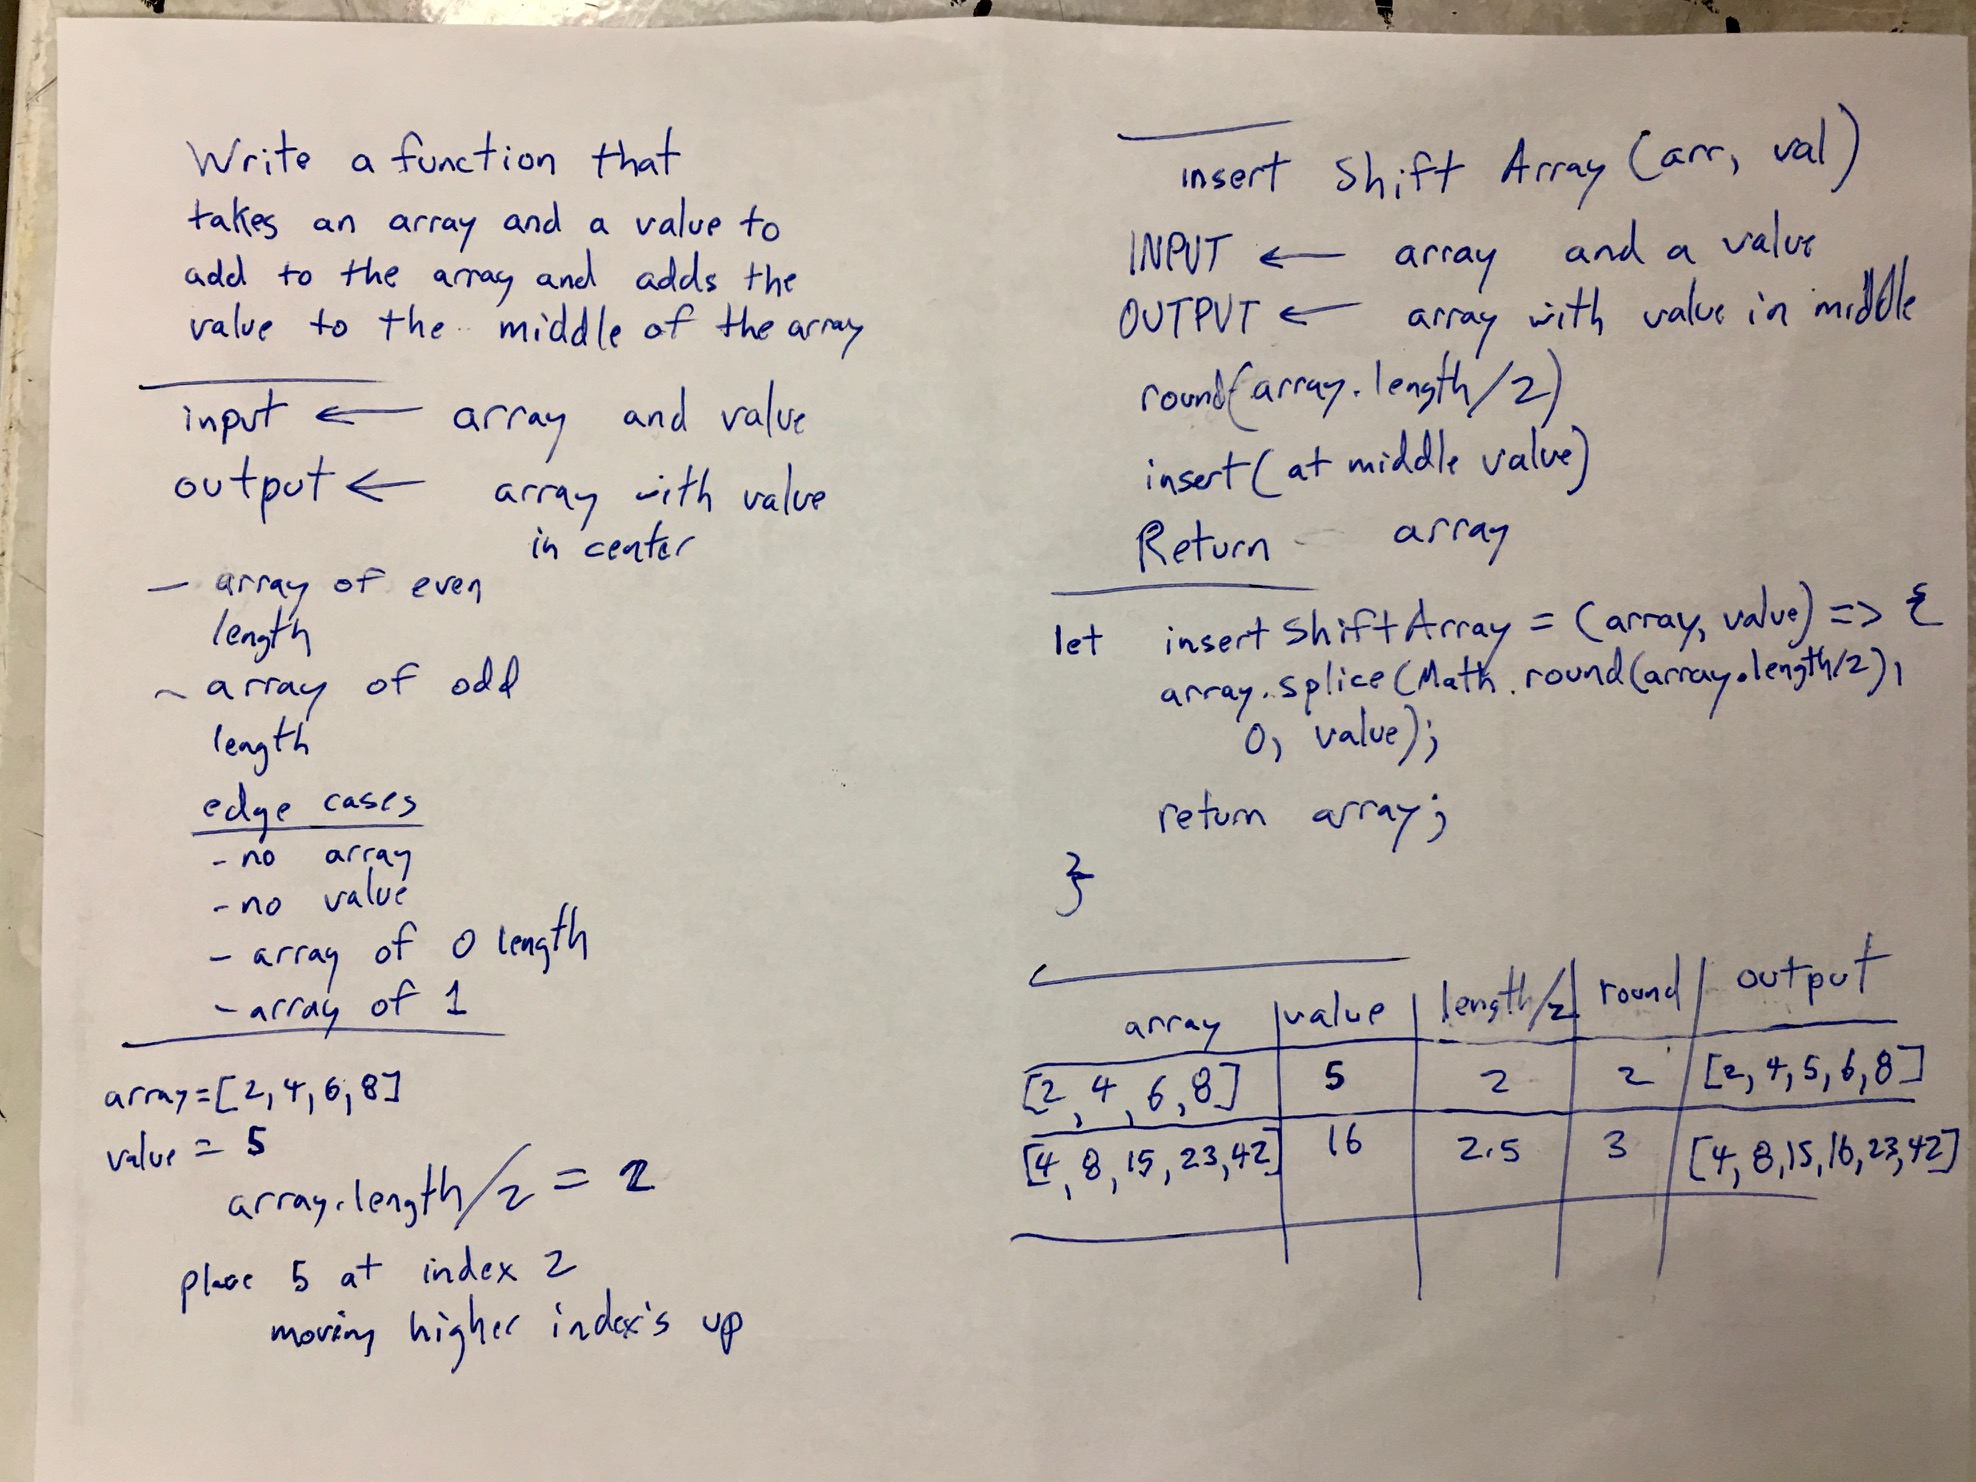 Write a function that
takes an array and a value to
add to the array and adds the
value to the middle of the array
input ← array and value
output ← array with value
in center
- array of even
length
~ array of odd
length
edge cases
- no array
- no value
- array of 0 length
- array of 1
array=[2, 4, 6, 8]
value = 5
array.length/2 = 2
place 5 at index 2
moving higher index's up
insert Shift Array (arr, val)
INPUT ← array and a value
OUTPUT ← array with value in middle
round(array.length/2)
insert( at middle value)
Return array
let insertShiftArray = (array, value) => {
array.splice(Math.round(array.length/2),
0, value);
return array;
}
array | value | length/2 | round | output
[2, 4, 6, 8] | 5 | 2 | 2 | [2, 4, 5, 6, 8]
[4, 8, 15, 23, 42] | 16 | 2.5 | 3 | [4, 8, 15, 16, 23, 42]